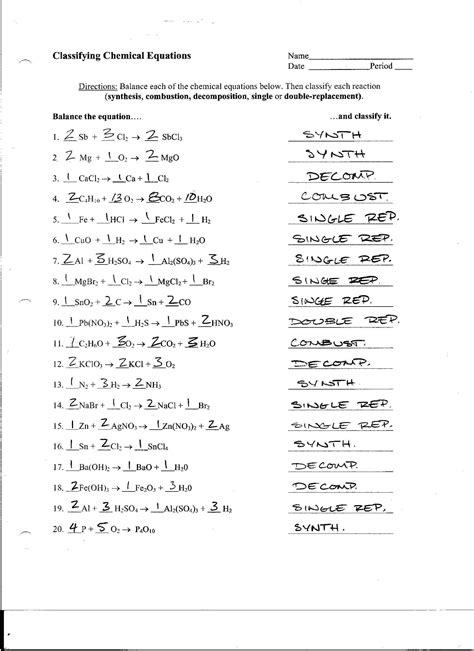 Classifying Chemical Equations
Name
Date Period
Directions: Balance each of the chemical equations below. Then classify each reaction
(synthesis, combustion, decomposition, single or double-replacement).
Balance the equation…. …and classify it.
1. 2 Sb + 3 Cl₂ → 2 SbCl₃ SYNTH
2 2 Mg + 1 O₂ → 2 MgO SYNTH
3. 1 CaCl₂ → 1 Ca + 1 Cl₂ DECOMP.
4. 2 C₄H₁₀ + 13 O₂ → 8 CO₂ + 10 H₂O COMBUST.
5. 1 Fe + 1 HCl → 1 FeCl₂ + 1 H₂ SINGLE REP.
6. 1 CuO + 1 H₂ → 1 Cu + 1 H₂O SINGLE REP.
7. 2 Al + 3 H₂SO₄ → 1 Al₂(SO₄)₃ + 3 H₂ SINGLE REP.
8. 1 MgBr₂ + 1 Cl₂ → 1 MgCl₂ + 1 Br₂ SINGE REP.
9. 1 SnO₂ + 2 C → 1 Sn + 2 CO SINGE REP.
10. 1 Pb(NO₃)₂ + 1 H₂S → 1 PbS + 2 HNO₃ DOUBLE REP.
11. 1 C₂H₆O + 3 O₂ → 2 CO₂ + 3 H₂O COMBUST.
12. 2 KClO₃ → 2 KCl + 3 O₂ DECOMP.
13. 1 N₂ + 3 H₂ → 2 NH₃ SYNTH.
14. 2 NaBr + 1 Cl₂ → 2 NaCl + 1 Br₂ SINGLE REP.
15. 1 Zn + 2 AgNO₃ → 1 Zn(NO₃)₂ + 2 Ag SINGLE REP.
16. 1 Sn + 2 Cl₂ → 1 SnCl₄ SYNTH.
17. 1 Ba(OH)₂ → 1 BaO + 1 H₂0 DECOMP.
18. 2 Fe(OH)₃ → 1 Fe₂O₃ + 3 H₂0 DECOMP.
19. 2 Al + 3 H₂SO₄ → 1 Al₂(SO₄)₃ + 3 H₂ SINGLE REP.
20. 4 P + 5 O₂ → P₄O₁₀ SYNTH.